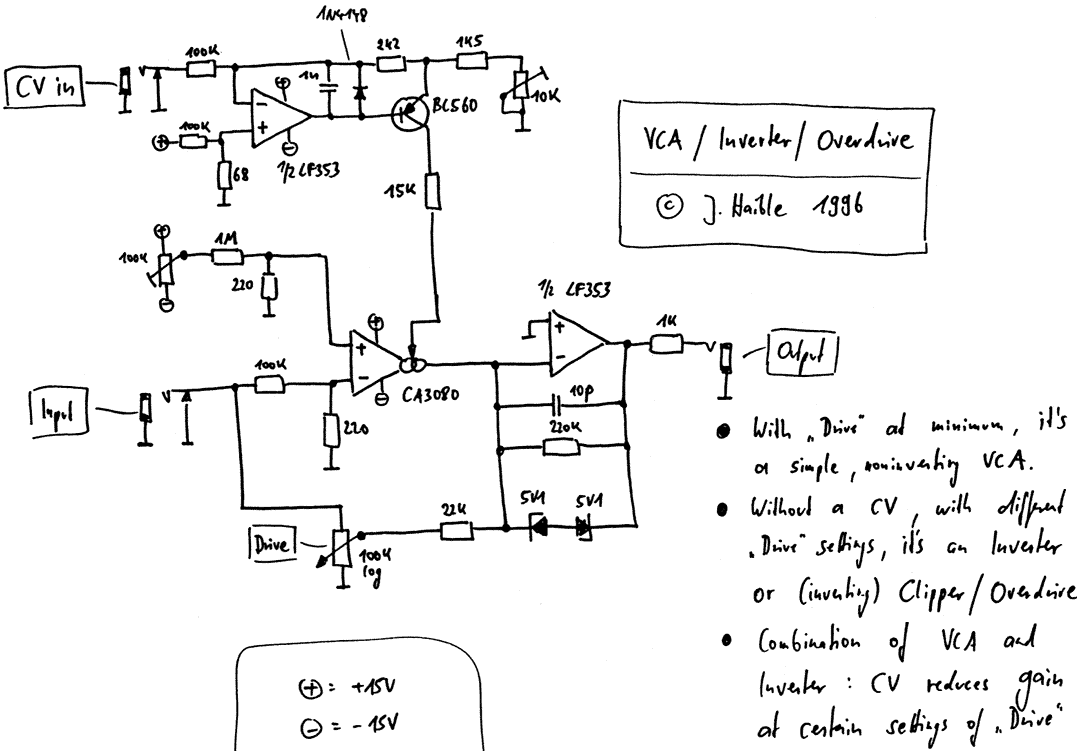 1N4148
100K
2K2
1K5
CV in
1n
10K
BC560
-
100K
+
68
1/2 LF353
15K
VCA / Inverter / Overdrive
© J. Haible 1996
100K
1M
220
1/2 LF353
+
+
-
1K
Output
CA3080
100K
-
10p
Input
220
220K
5V1
5V1
22K
Drive
100K
log
• With „Drive" at minimum, it's
a simple, noninverting VCA.
• Without a CV, with different
„Drive" settings, it's an Inverter
or (inverting) Clipper / Overdrive
• Combination of VCA and
Inverter : CV reduces gain
at certain settings of „Drive"
⊕ = +15V
⊖ = -15V